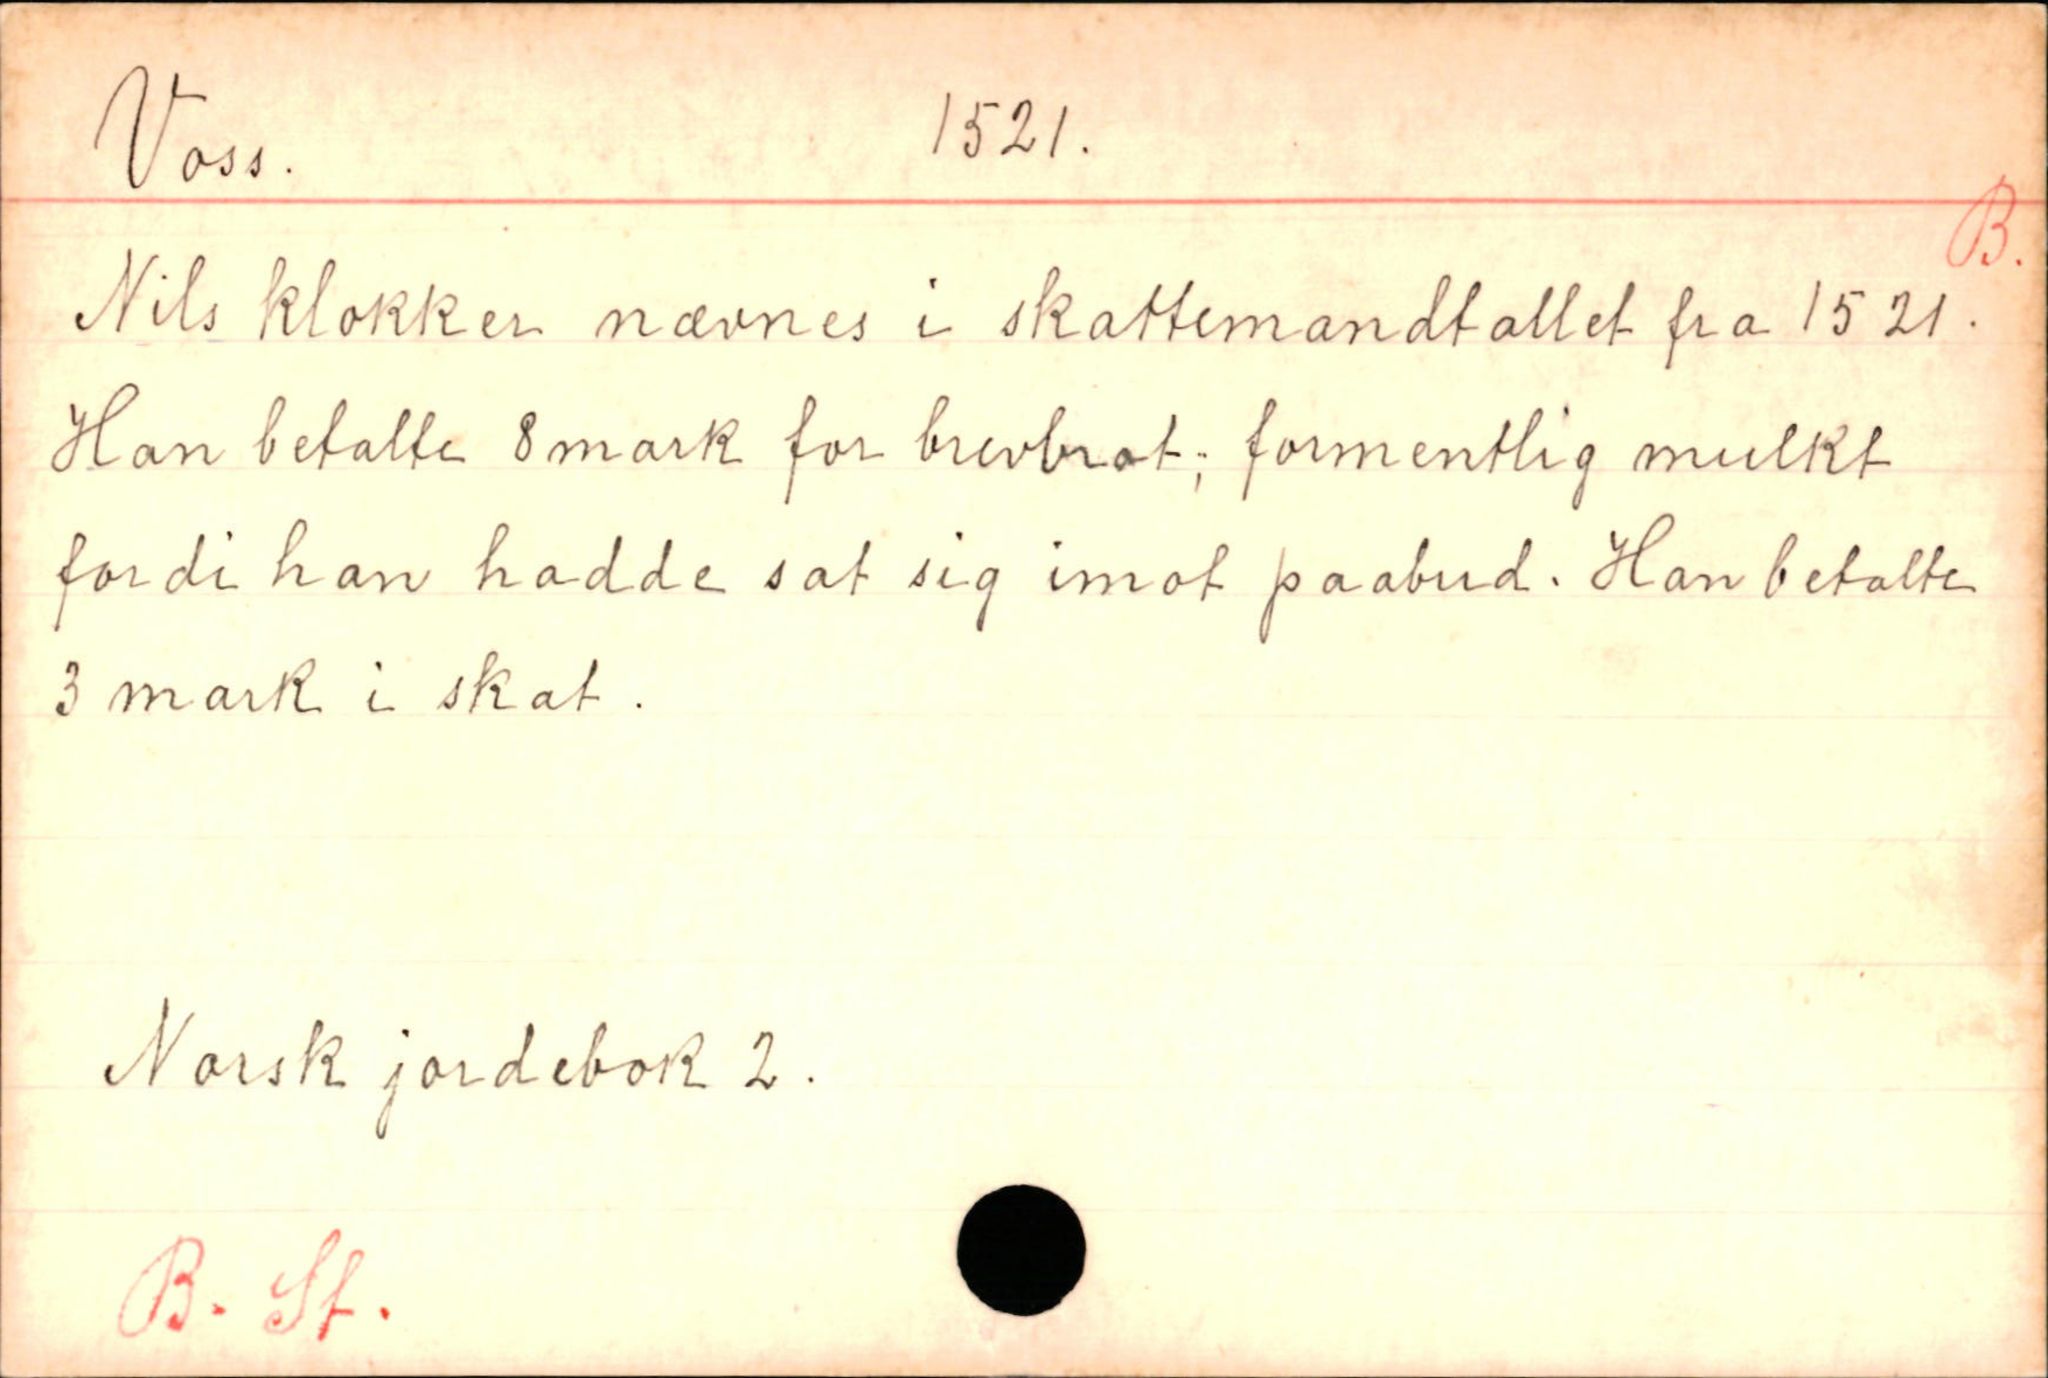 Voss. 1521.
B.
Nils klokker nævnes i skattemandtallet fra 1521.
Han betalte 8 mark for brevbrot; formentlig mulkt
fordi han hadde sat sig imot paabud. Han betalte
3 mark i skat.
Norsk jordebok 2.
B. St.